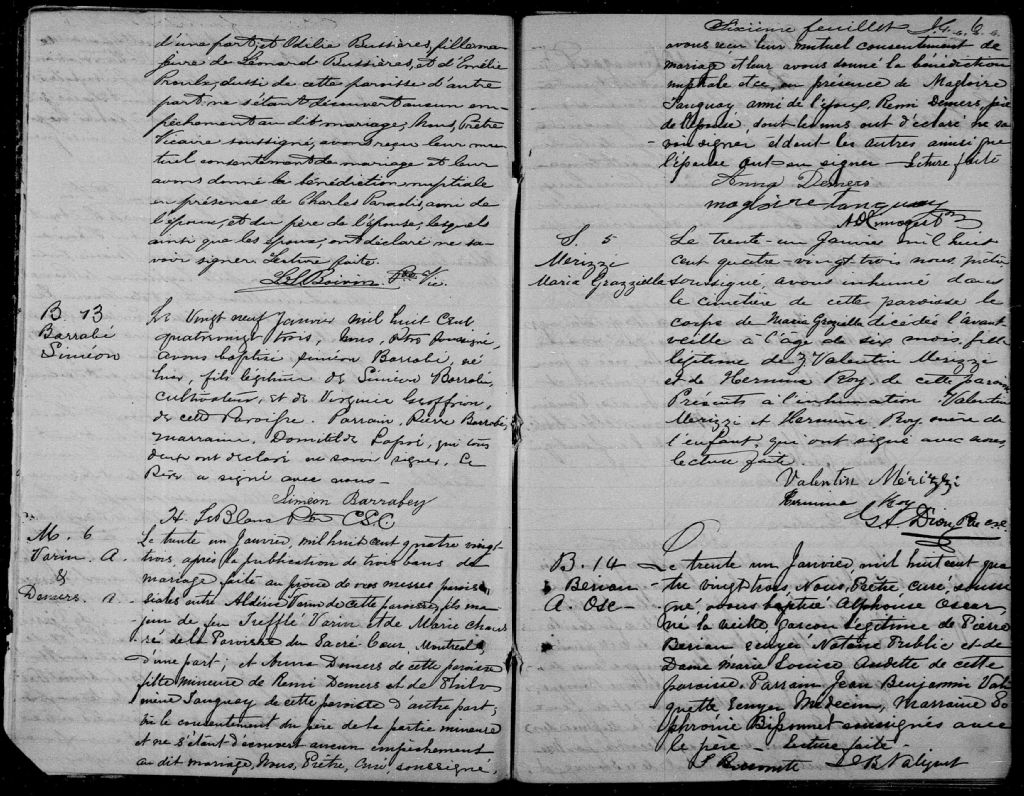 d'une part, et Odilie Bussières, fille ma-
jeure de Léonard Bussières, et d'Emélie
Proulx, aussi de cette paroisse d'autre
part; ne s'étant découvert aucun em-
pêchement au dit mariage, Nous, Prêtre
Vicaire soussigné, avons reçu leur mu-
tuel consentement de mariage et leur
avons donné la bénédiction nuptiale
en présence de Charles Paradis, ami de
l'époux, et du père de l'épouse, lesquels
ainsi que les époux, ont déclaré ne sa-
voir signer. Lecture faite.
Boivin Ptre Vic.
B 13
Barrabé
Siméon
Le Vingt neuf Janvier mil huit cent
quatrevingt trois, Nous, ptre soussigné,
avons baptisé Siméon Barrabé, né
hier, fils légitime de Siméon Barrabé,
cultivateur, et de Virginie Geoffrion,
de cette Paroisse. Parrain, Pierre Barrabé,
marraine, Domitilde, qui tous
deux ont déclaré ne savoir signer, Le
Père a signé avec nous
Simeon Barrabey
H. LeBlanc Ptre CSC
M. 6
Varin. A.
&
Demers. A.
Le trente un Janvier, mil huit cent quatre vingt-
trois, après la publication de trois bans de
mariage faite au prône de nos messes parois-
siales entre Aldéric Varin de cette paroisse, fils ma-
jeur de feu Trefflé Varin et de Marie
de la Paroisse du Sacré Cœur, Montréal
d'une part; et Anna Demers de cette paroisse
fille mineure de Remi Demers et de Philo
mène Tanguay de cette paroisse d'autre part;
vu le consentement du père de la partie mineure
et ne s'étant découvert aucun empêchement
au dit mariage, Nous, Prêtre, curé, soussigné,
Sixième feuillet 6
avons reçu leur mutuel consentement de
mariage et leur avons donné la bénédiction
nuptiale en présence de Magloire
Tanguay ami de l'époux, Remi Demers, père
de l'épouse, dont les uns ont déclaré ne sa
voir signer et dont les autres ainsi que
l'épouse ont su signer - Lecture faite
Anna Demers
magloire tanguay
S. 5
Merizzi
Maria Grazziella
Le trente-un Janvier mil huit
cent quatre-vingt trois nous, prêtre
soussigné, avons inhumé dans
le cimetière de cette paroisse le
corps de Maria Graziella décédée l'avant
veille à l'âge de six mois, fille
légitime de Valentin Merizzi
et de Hermine Roy de cette paroisse
Présents à l'inhumation Valentin
Merizzi et Hermine Roy mère de
l'enfant, qui ont signé avec nous,
lecture faite.
Valentin Mérizzi
Hermine Roy
Dion Ptre
B. 14
Berian
A. Osc-
Le trente un Janvier, mil huit cent qua
tre vingt trois, Nous, Prêtre, curé, soussi
gné, avons baptisé Alphonse Oscar,
né la veille, garçon légitime de Pierre
Berian Ecuyer Notaire Public et de
Dame Marie Louise Audette de cette
paroisse. Parrain Jean Benjamin Vali
quette Ecuyer Médecin, Marraine So
phronie Bissonnet soussignés avec
le père - Lecture faite -